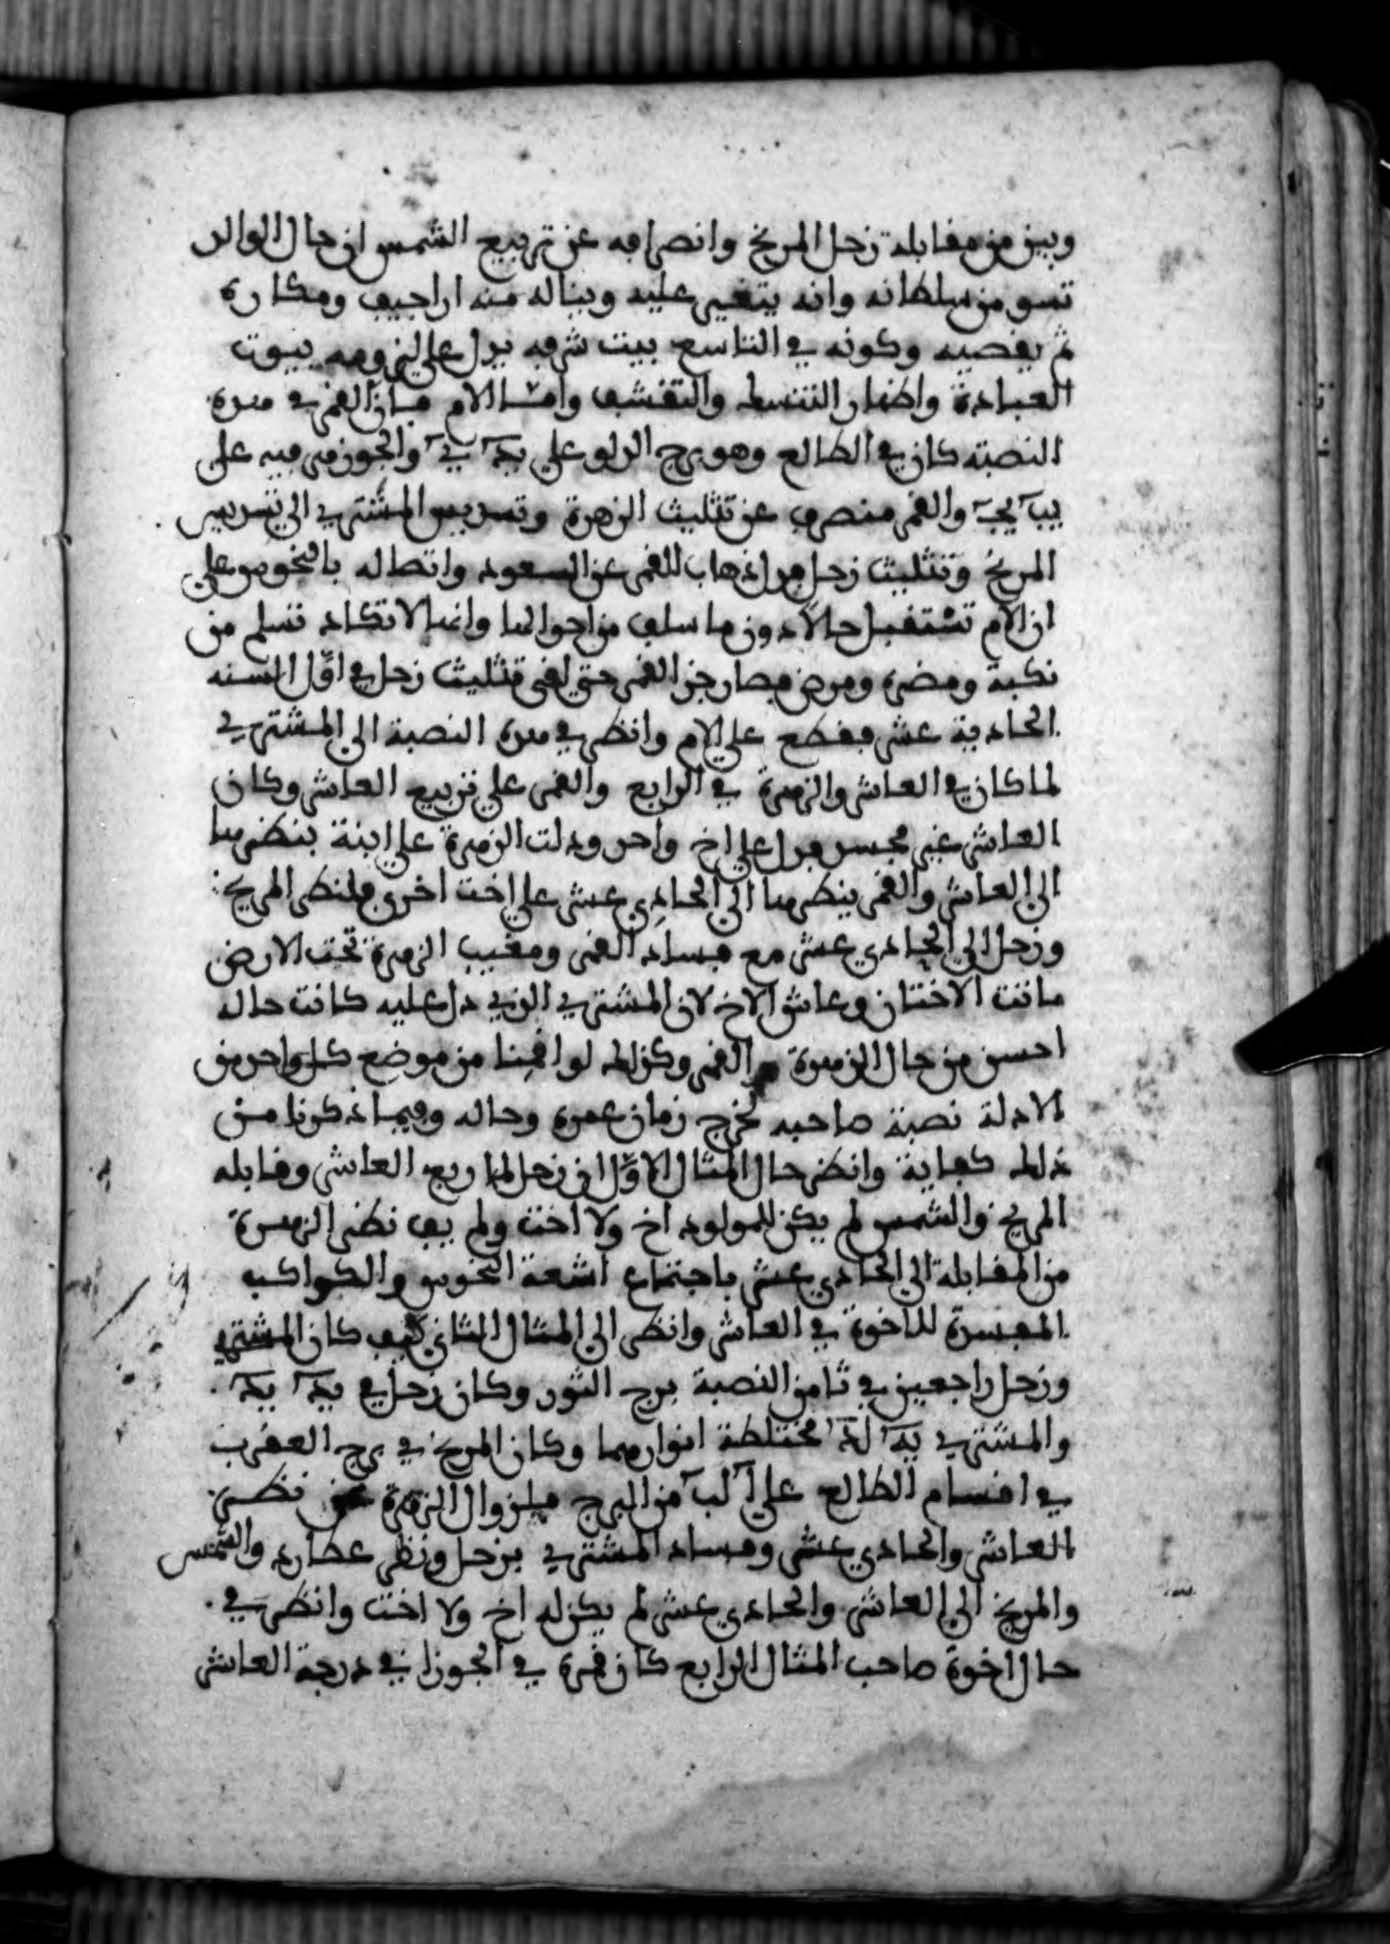 وبين من مقابلة زحل المريخ وانصرافه عن تربيع الشمس ان حال الوالد
تسو من سلطانه وانه يتغير عليه ويناله منه اراجيف ومكاره
ثم يقصيه وكونه في التاسع بيت شرفه يدل على لزومه بيوت
العبادة واظهار التنسك والتقشف وامّا الام فان القمر في هذه
النصبة كان في الطالع وهو برج الدلو على يد ي والجوزهر فيه على
يب يج والقمر منصرف عن تثليث الزهرة وتسديس المشتري الى تسديس
المريخ وتثليث زحل فدل ذهاب القمر عن السعود واتصاله بالنحوس على
ان الام تستقبل حالاً دون ما سلف من احوالها وانها لا تكاد تسلم من
نكبة ومضرة ومرض فصار جز القمر حتى لقى تثليث زحل في اوّل السنه
الحادية عشر فقطع على الام وانظر في هذه النصبة الى المشتري
لما كان في العاشر والزهرة في الرابع والقمر على تربيع العاشر وكان
العاشر غير مجسد فدل على اخ واحد ودلت الزهرة على ابنة بنظرها
الى العاشر والقمر ينظرها الى الحادي عشر على اخت اخرى فلنظر المريخ
وزحل الى الحادي عشر مع فساد القمر ومغيب الزهرة تحت الارض
ماتت الاختان وعاش الاخ لان المشتري الذي دل عليه كانت حاله
احسن من حال الزهرة والقمر وكذلك لو اقمنا من موضع كل واحد من
الادلة نصبة صاحبه لخرج زمان عمره وحاله وفيما ذكرنا من
ذلك كفاية وانظر حال المثال الاوّل ان زحل لما ربع العاشر وقابله
المريخ والشمس لم يكن للمولود اخ ولا اخت ولم يف نظر الزهرة
من المقابلة الى الحادي عشر باجتماع اشعة النحوس والكواكب
المفسدة للاخوة في العاشر وانظر الى المثال الثاني كيف كان المشتري
وزحل راجعين في ثامن النصبة برج الثور وكان زحل في يد يد
والمشتري يد له مختلطة انوارهما وكان المريخ في برج العقرب
في اقسام الطالع على ا لب من البرج فلزوال الزهرة عن نظر
العاشر والحادي عشر وفساد المشتري بزحل ونظر عطارد والشمس
والمريخ الى العاشر والحادي عشر لم يكن له اخ ولا اخت وانظر في
حال اخوة صاحب المثال الرابع كان قمره في الجوزا في درجة العاشر